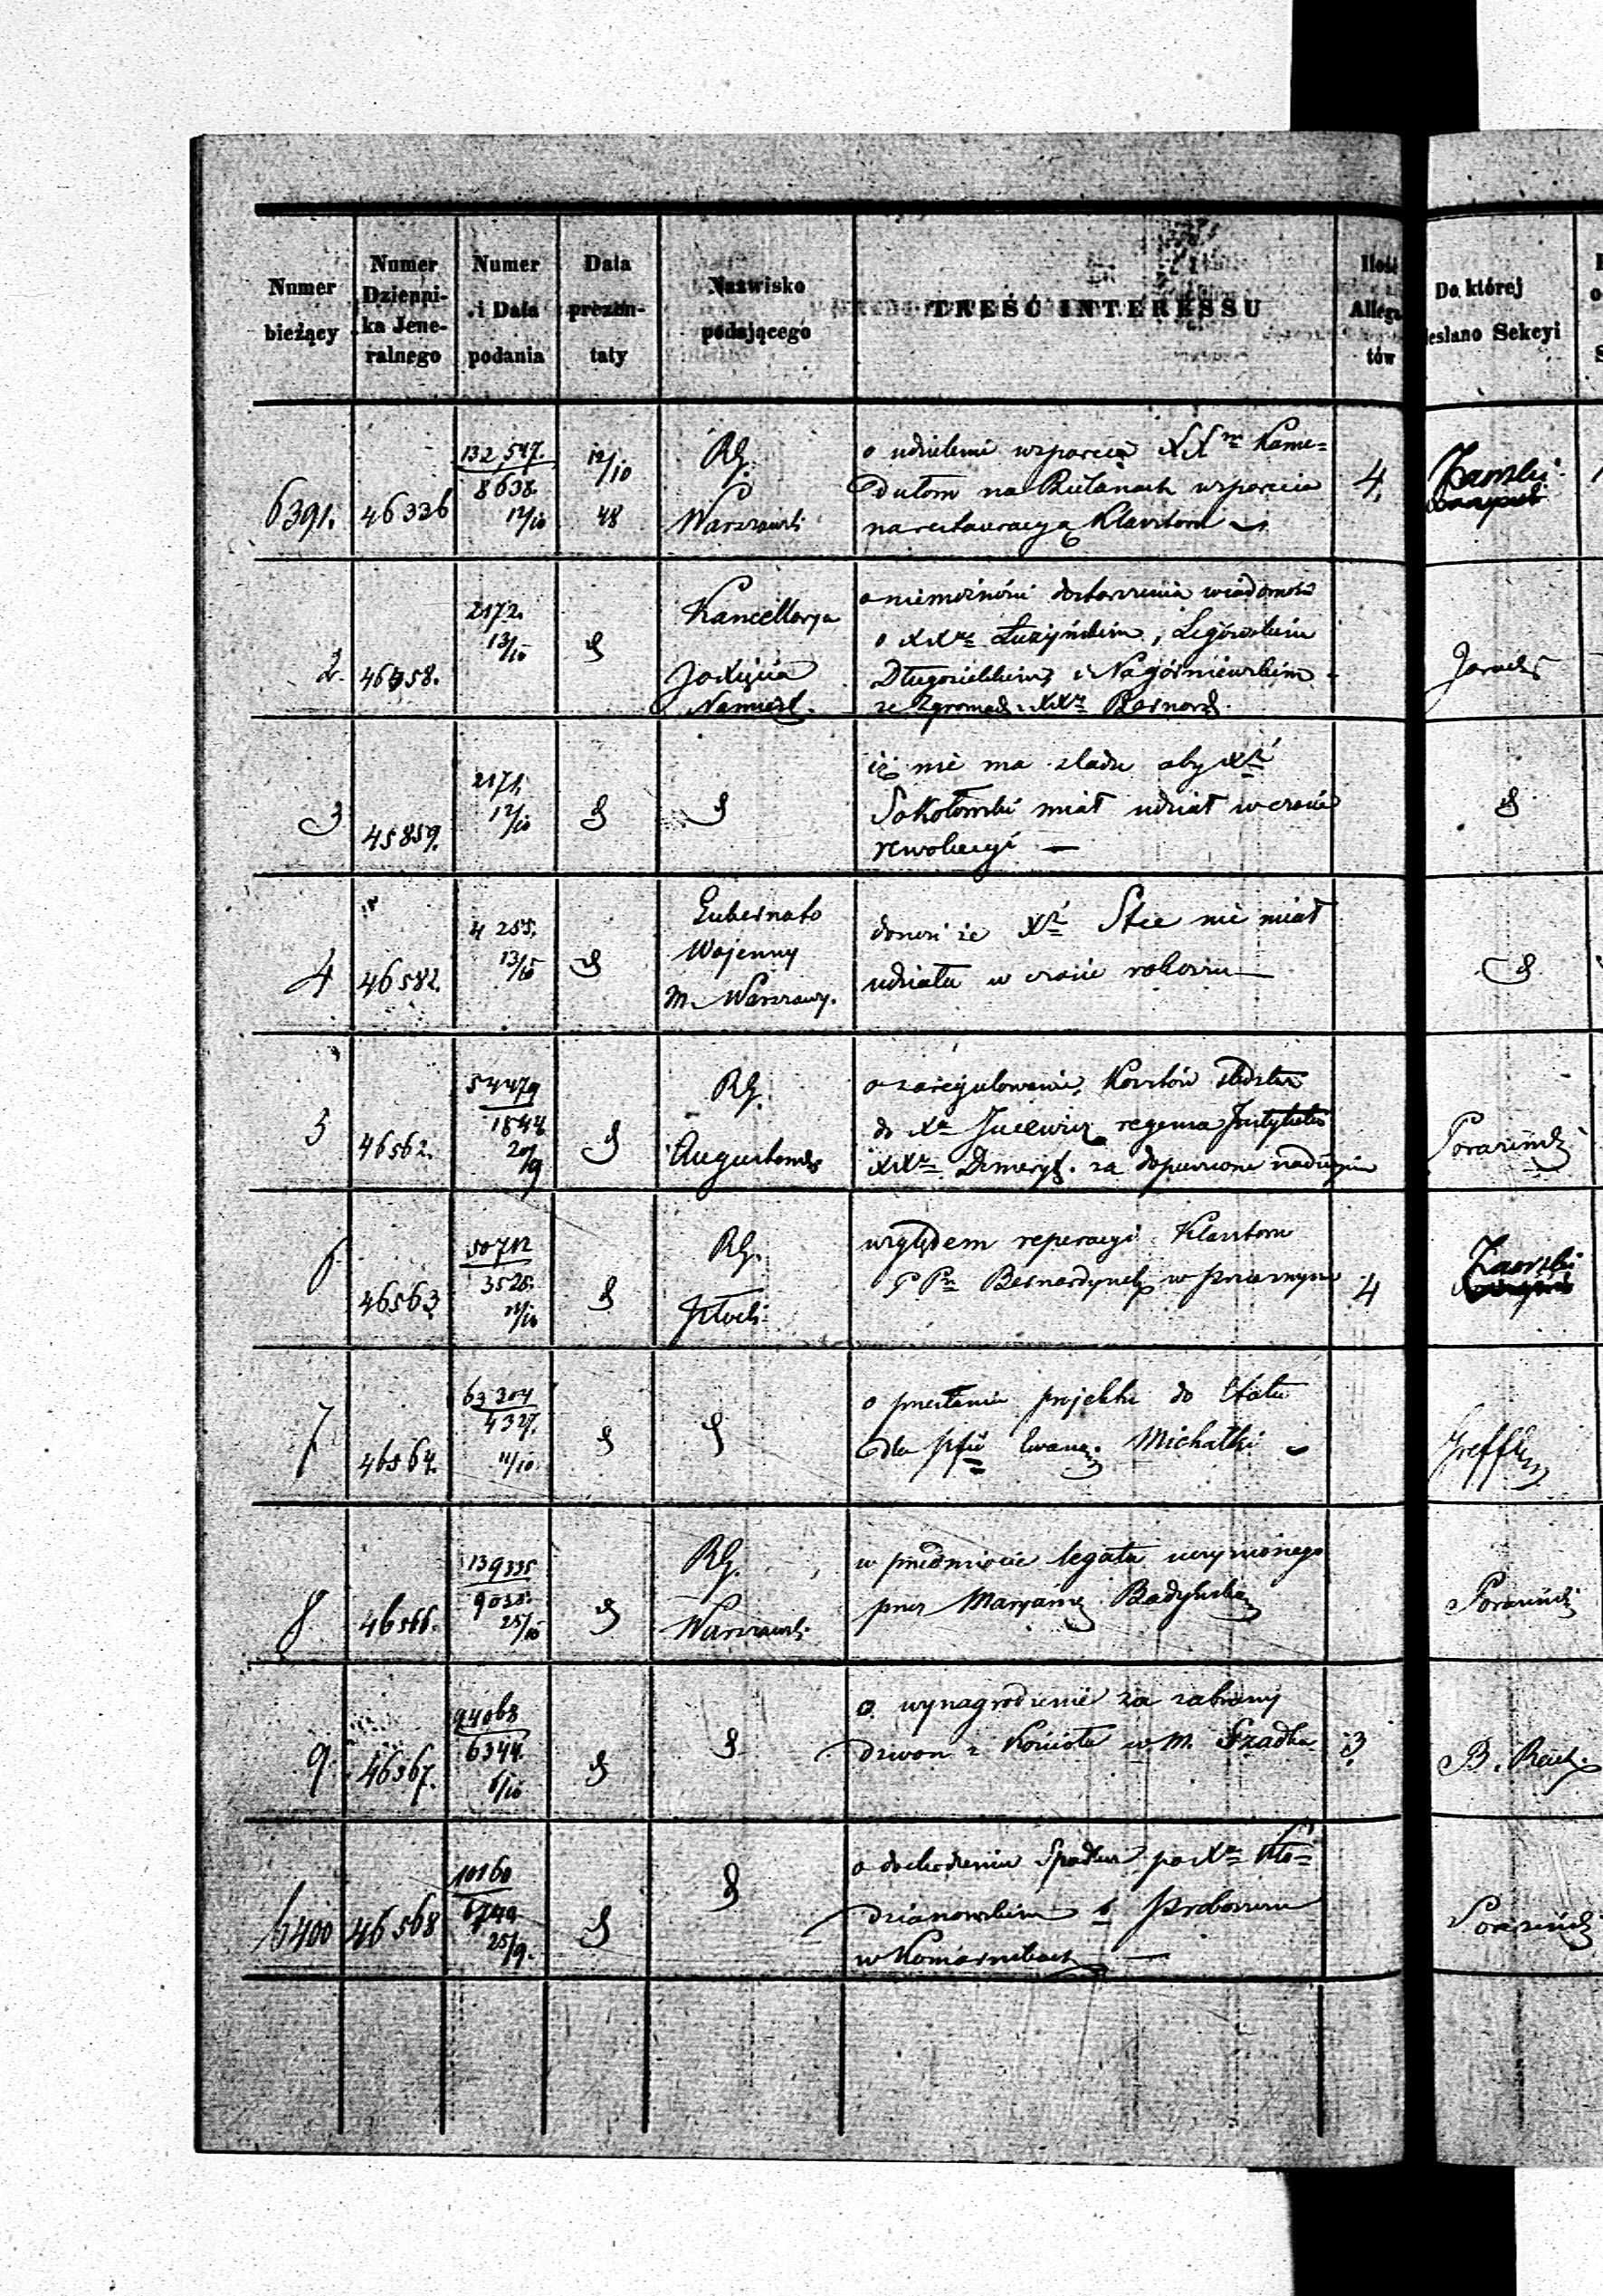 Numer bieżący
Numer Dzienni-ka Jene-ralnego
Numer i Data podania
Data prezen-taty
Nazwisko podającego
TREŚĆ INTERESSU
Ilość Allega-tów
Do której
esłano Sekcyi
6391.
46336
132,547.
8638.
12/10
12/10
48
RG.
Warszawski
o udzielenie wsparcia XX Kame=
dułom na Bielanach wsparcia
na restauracyą Klasztoru
4.
2.
46458.
2172.
13/10
Kancellarya
Jo Xięcia
Namiest.
o niemożności dostarczenia wiadomości
o XX Łuzyńskim, Legowskim
Długosielskim i Nagórniewskim
ze Zgromad. XX Bernard.
3
45859.
2171.
12/10
iż nie ma sladu aby Xdz
Sokołowski miał udział w czasie
rewolucyi —
4
46582.
4255.
13/10
Gubernator
Wojenny
M. Warszawy.
donosi że Xdz Stec nie miał
udziału w czasie rokoszu —
5
46562.
54479
1844
20/9
RG.
Augustowski
o zaregulowanie Kosztów śledztwa
do Xa Jucewicz regensa Instytutu
XX Demeryt. za dopuszczone nadużycia
Porazinski
6
46563
50712
3525.
11/10
RG.
Płocki
względem reperacyi Klasztoru
PP Bernardynek w Przasnyszu
4
7
46564.
63304
4327.
11/10
o przesłaniu projektu do Etatu
dla pfii Ewang. Michałki
Greffen
8
46566.
139335
9035.
25/10
RG.
Warszawski
w przedmiocie legatu uczynionego
przez Maryannę Badyńską
Porazinski
9.
46567.
94068
6344.
6/10
o wynagrodzenie za zabrany
dzwon z Kościoła w M. Szadku
3
B. Rach.
6400
46568
10160
6749
25/9.
o dochodzeniu Spadku po X Kło=
dzianowskim b. Proboszczu
w Komornikach —
Porazinski